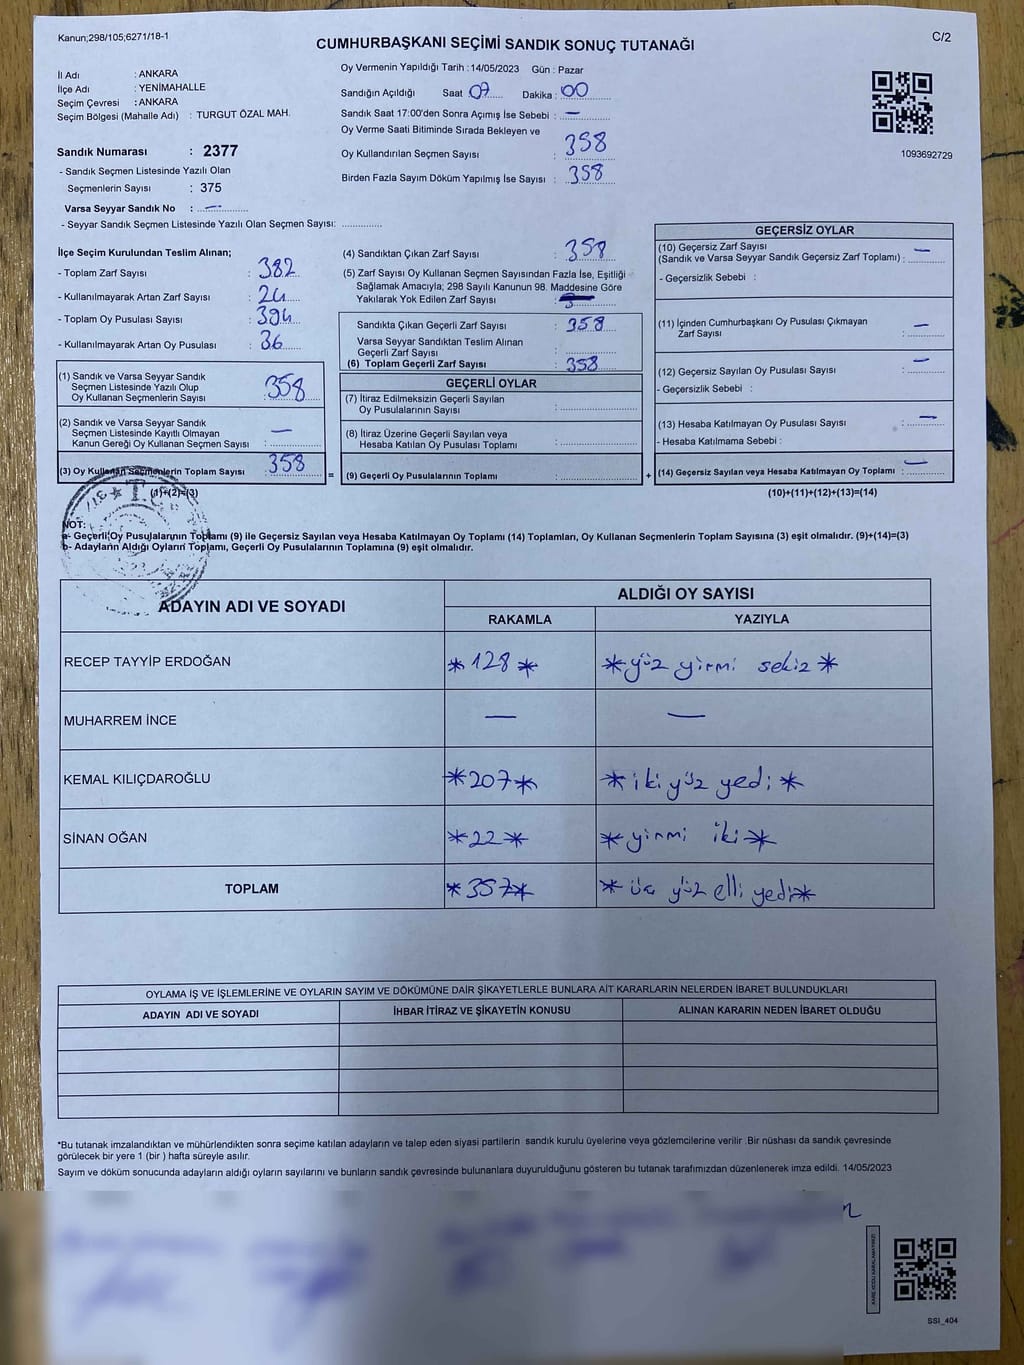 Kanun;298/105;6271/18-1
C/2
CUMHURBAŞKANI SEÇİMİ SANDIK SONUÇ TUTANAĞI
İl Adı : ANKARA
İlçe Adı : YENİMAHALLE
Seçim Çevresi : ANKARA
Seçim Bölgesi (Mahalle Adı) : TURGUT ÖZAL MAH.
Sandık Numarası : 2377
- Sandık Seçmen Listesinde Yazılı Olan
Seçmenlerin Sayısı : 375
Varsa Seyyar Sandık No : —
- Seyyar Sandık Seçmen Listesinde Yazılı Olan Seçmen Sayısı: ..............
Oy Vermenin Yapıldığı Tarih : 14/05/2023 Gün : Pazar
Sandığın Açıldığı Saat 07 Dakika : 00
Sandık Saat 17:00'den Sonra Açımış İse Sebebi : —
Oy Verme Saati Bitiminde Sırada Bekleyen ve
Oy Kullandırılan Seçmen Sayısı : 358
Birden Fazla Sayım Döküm Yapılmış İse Sayısı : 358
1093692729
İlçe Seçim Kurulundan Teslim Alınan;
- Toplam Zarf Sayısı : 382
- Kullanılmayarak Artan Zarf Sayısı : 24
- Toplam Oy Pusulası Sayısı : 394
- Kullanılmayarak Artan Oy Pusulası : 36
(1) Sandık ve Varsa Seyyar Sandık
Seçmen Listesinde Yazılı Olup
Oy Kullanan Seçmenlerin Sayısı : 358
(2) Sandık ve Varsa Seyyar Sandık
Seçmen Listesinde Kayıtlı Olmayan
Kanun Gereği Oy Kullanan Seçmen Sayısı : —
(3) Oy Kullanan Seçmenlerin Toplam Sayısı : 358
(1)+(2)=(3)
(4) Sandıktan Çıkan Zarf Sayısı : 358
(5) Zarf Sayısı Oy Kullanan Seçmen Sayısından Fazla İse, Eşitliği
Sağlamak Amacıyla; 298 Sayılı Kanunun 98. Maddesine Göre
Yakılarak Yok Edilen Zarf Sayısı :
Sandıkta Çıkan Geçerli Zarf Sayısı : 358
Varsa Seyyar Sandıktan Teslim Alınan
Geçerli Zarf Sayısı :
(6) Toplam Geçerli Zarf Sayısı : 358
GEÇERLİ OYLAR
(7) İtiraz Edilmeksizin Geçerli Sayılan
Oy Pusulalarının Sayısı :
(8) İtiraz Üzerine Geçerli Sayılan veya
Hesaba Katılan Oy Pusulası Toplamı :
= (9) Geçerli Oy Pusulalarının Toplamı : +
GEÇERSİZ OYLAR
(10) Geçersiz Zarf Sayısı
(Sandık ve Varsa Seyyar Sandık Geçersiz Zarf Toplamı) : —
- Geçersizlik Sebebi :
(11) İçinden Cumhurbaşkanı Oy Pusulası Çıkmayan
Zarf Sayısı : —
(12) Geçersiz Sayılan Oy Pusulası Sayısı : —
- Geçersizlik Sebebi :
(13) Hesaba Katılmayan Oy Pusulası Sayısı : —
- Hesaba Katılmama Sebebi :
(14) Geçersiz Sayılan veya Hesaba Katılmayan Oy Toplamı : —
(10)+(11)+(12)+(13)=(14)
NOT:
a- Geçerli Oy Pusulalarının Toplamı (9) ile Geçersiz Sayılan veya Hesaba Katılmayan Oy Toplamı (14) Toplamları, Oy Kullanan Seçmenlerin Toplam Sayısına (3) eşit olmalıdır. (9)+(14)=(3)
b- Adayların Aldığı Oyların Toplamı, Geçerli Oy Pusulalarının Toplamına (9) eşit olmalıdır.
ADAYIN ADI VE SOYADI
ALDIĞI OY SAYISI
RAKAMLA YAZIYLA
RECEP TAYYİP ERDOĞAN *128* *yüz yirmi sekiz*
MUHARREM İNCE — —
KEMAL KILIÇDAROĞLU *207* *iki yüz yedi*
SİNAN OĞAN *22* *yirmi iki*
TOPLAM *357* *üç yüz elli yedi*
OYLAMA İŞ VE İŞLEMLERİNE VE OYLARIN SAYIM VE DÖKÜMÜNE DAİR ŞİKAYETLERLE BUNLARA AİT KARARLARIN NELERDEN İBARET BULUNDUKLARI
ADAYIN ADI VE SOYADI İHBAR İTİRAZ VE ŞİKAYETİN KONUSU ALINAN KARARIN NEDEN İBARET OLDUĞU
*Bu tutanak imzalandıktan ve mühürlendikten sonra seçime katılan adayların ve talep eden siyasi partilerin sandık kurulu üyelerine veya gözlemcilerine verilir .Bir nüshası da sandık çevresinde
görülecek bir yere 1 (bir ) hafta süreyle asılır.
Sayım ve döküm sonucunda adayların aldığı oyların sayılarını ve bunların sandık çevresinde bulunanlara duyurulduğunu gösteren bu tutanak tarafımızdan düzenlenerek imza edildi. 14/05/2023
KARE KODU KARALAMAYINIZ!
SSI_404